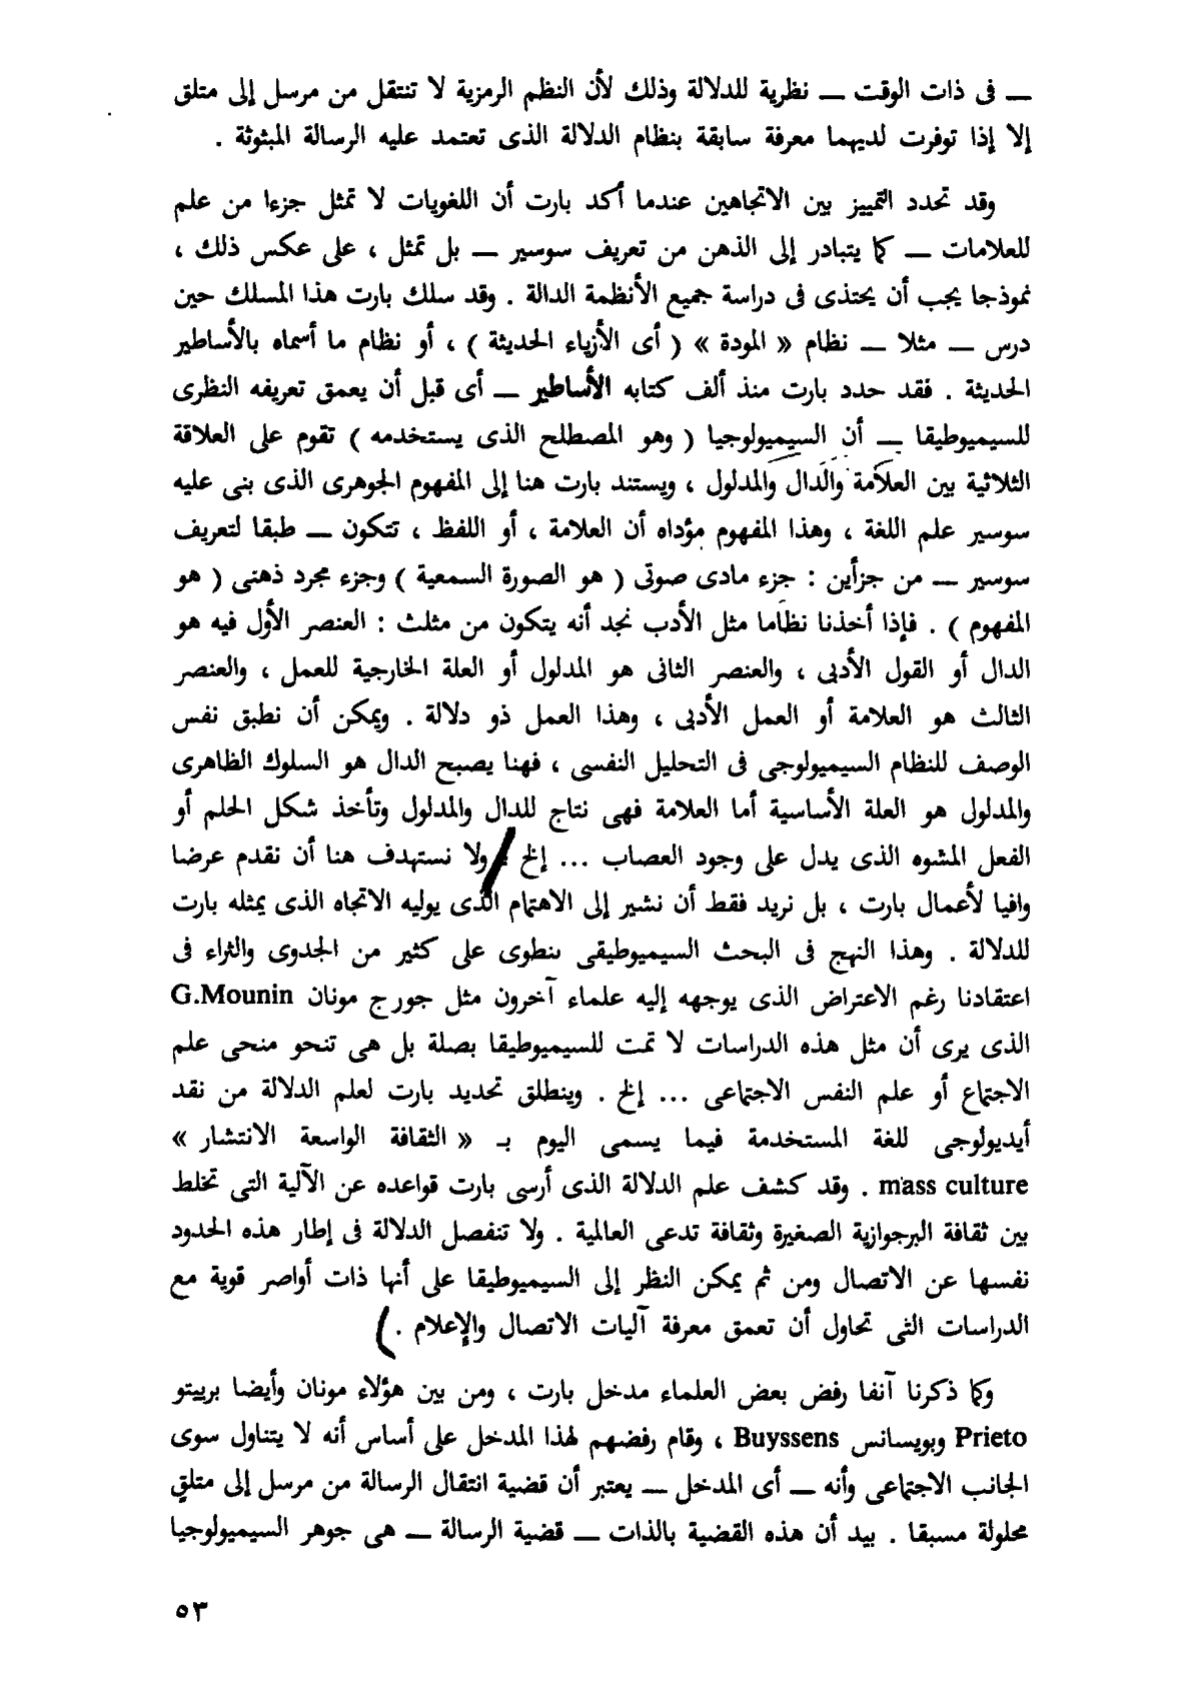 — فى ذات الوقت — نظرية للدلالة وذلك لأن النظم الرمزية لا تنتقل من مرسل إلى متلق
إلا إذا توفرت لديهما معرفة سابقة بنظام الدلالة الذى تعتمد عليه الرسالة المبثوثة .
وقد تحدد التمييز بين الاتجاهين عندما أكد بارت أن اللغويات لا تمثل جزءا من علم
للعلامات — كما يتبادر إلى الذهن من تعريف سوسير — بل تمثل ، على عكس ذلك ،
نموذجا يجب أن يحتذى فى دراسة جميع الأنظمة الدالة . وقد سلك بارت هذا المسلك حين
درس — مثلا — نظام « المودة » ( أى الأزياء الحديثة ) ، أو نظام ما أسماه بالأساطير
الحديثة . فقد حدد بارت منذ ألف كتابه الأساطير — أى قبل أن يعمق تعريفه النظرى
للسيميوطيقا — أن السيميولوجيا ( وهو المصطلح الذى يستخدمه ) تقوم على العلاقة
الثلاثية بين العلامة والدال والمدلول ، ويستند بارت هنا إلى المفهوم الجوهرى الذى بنى عليه
سوسير علم اللغة ، وهذا المفهوم مؤداه أن العلامة ، أو اللفظ ، تتكون — طبقا لتعريف
سوسير — من جزأين : جزء مادى صوتى ( هو الصورة السمعية ) وجزء مجرد ذهنى ( هو
المفهوم ) . فإذا أخذنا نظاما مثل الأدب نجد أنه يتكون من مثلث : العنصر الأول فيه هو
الدال أو القول الأدبى ، والعنصر الثانى هو المدلول أو العلة الخارجية للعمل ، والعنصر
الثالث هو العلامة أو العمل الأدبى ، وهذا العمل ذو دلالة . ويمكن أن نطبق نفس
الوصف للنظام السيميولوجى فى التحليل النفسى ، فهنا يصبح الدال هو السلوك الظاهرى
والمدلول هو العلة الأساسية أما العلامة فهى نتاج للدال والمدلول وتأخذ شكل الحلم أو
الفعل المشوه الذى يدل على وجود العصاب ... إلخ . ولا نستهدف هنا أن نقدم عرضا
وافيا لأعمال بارت ، بل نريد فقط أن نشير إلى الاهتمام الذى يوليه الاتجاه الذى يمثله بارت
للدلالة . وهذا النهج فى البحث السيميوطيقى ينطوى على كثير من الجدوى والثراء فى
اعتقادنا رغم الاعتراض الذى يوجهه إليه علماء آخرون مثل جورج مونان G.Mounin
الذى يرى أن مثل هذه الدراسات لا تمت للسيميوطيقا بصلة بل هى تنحو منحى علم
الاجتماع أو علم النفس الاجتماعى ... إلخ . وينطلق تحديد بارت لعلم الدلالة من نقد
أيديولوجى للغة المستخدمة فيما يسمى اليوم بـ « الثقافة الواسعة الانتشار »
mass culture . وقد كشف علم الدلالة الذى أرسى بارت قواعده عن الآلية التى تخلط
بين ثقافة البرجوازية الصغيرة وثقافة تدعى العالمية . ولا تنفصل الدلالة فى إطار هذه الحدود
نفسها عن الاتصال ومن ثم يمكن النظر إلى السيميوطيقا على أنها ذات أواصر قوية مع
الدراسات التى تحاول أن تعمق معرفة آليات الاتصال والإعلام .
وكما ذكرنا آنفا رفض بعض العلماء مدخل بارت ، ومن بين هؤلاء مونان وأيضا برييتو
Prieto وبويسانس Buyssens ، وقام رفضهم لهذا المدخل على أساس أنه لا يتناول سوى
الجانب الاجتماعى وأنه — أى المدخل — يعتبر أن قضية انتقال الرسالة من مرسل إلى متلقٍ
محلولة مسبقا . بيد أن هذه القضية بالذات — قضية الرسالة — هى جوهر السيميولوجيا
٥٣